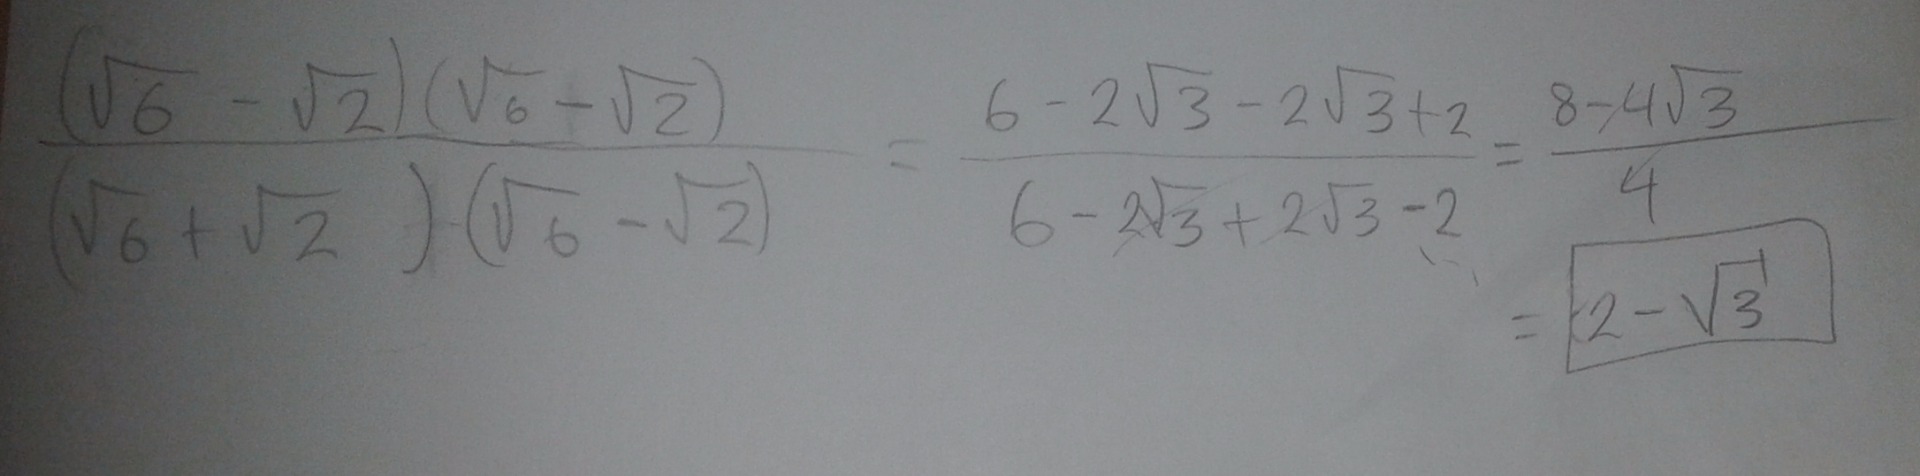 (√6 - √2)(√6 - √2) / (√6 + √2)·(√6 - √2) = 6 - 2√3 - 2√3 + 2 / 6 - 2√3 + 2√3 - 2 = 8 - 4√3 / 4
= 2 - √3